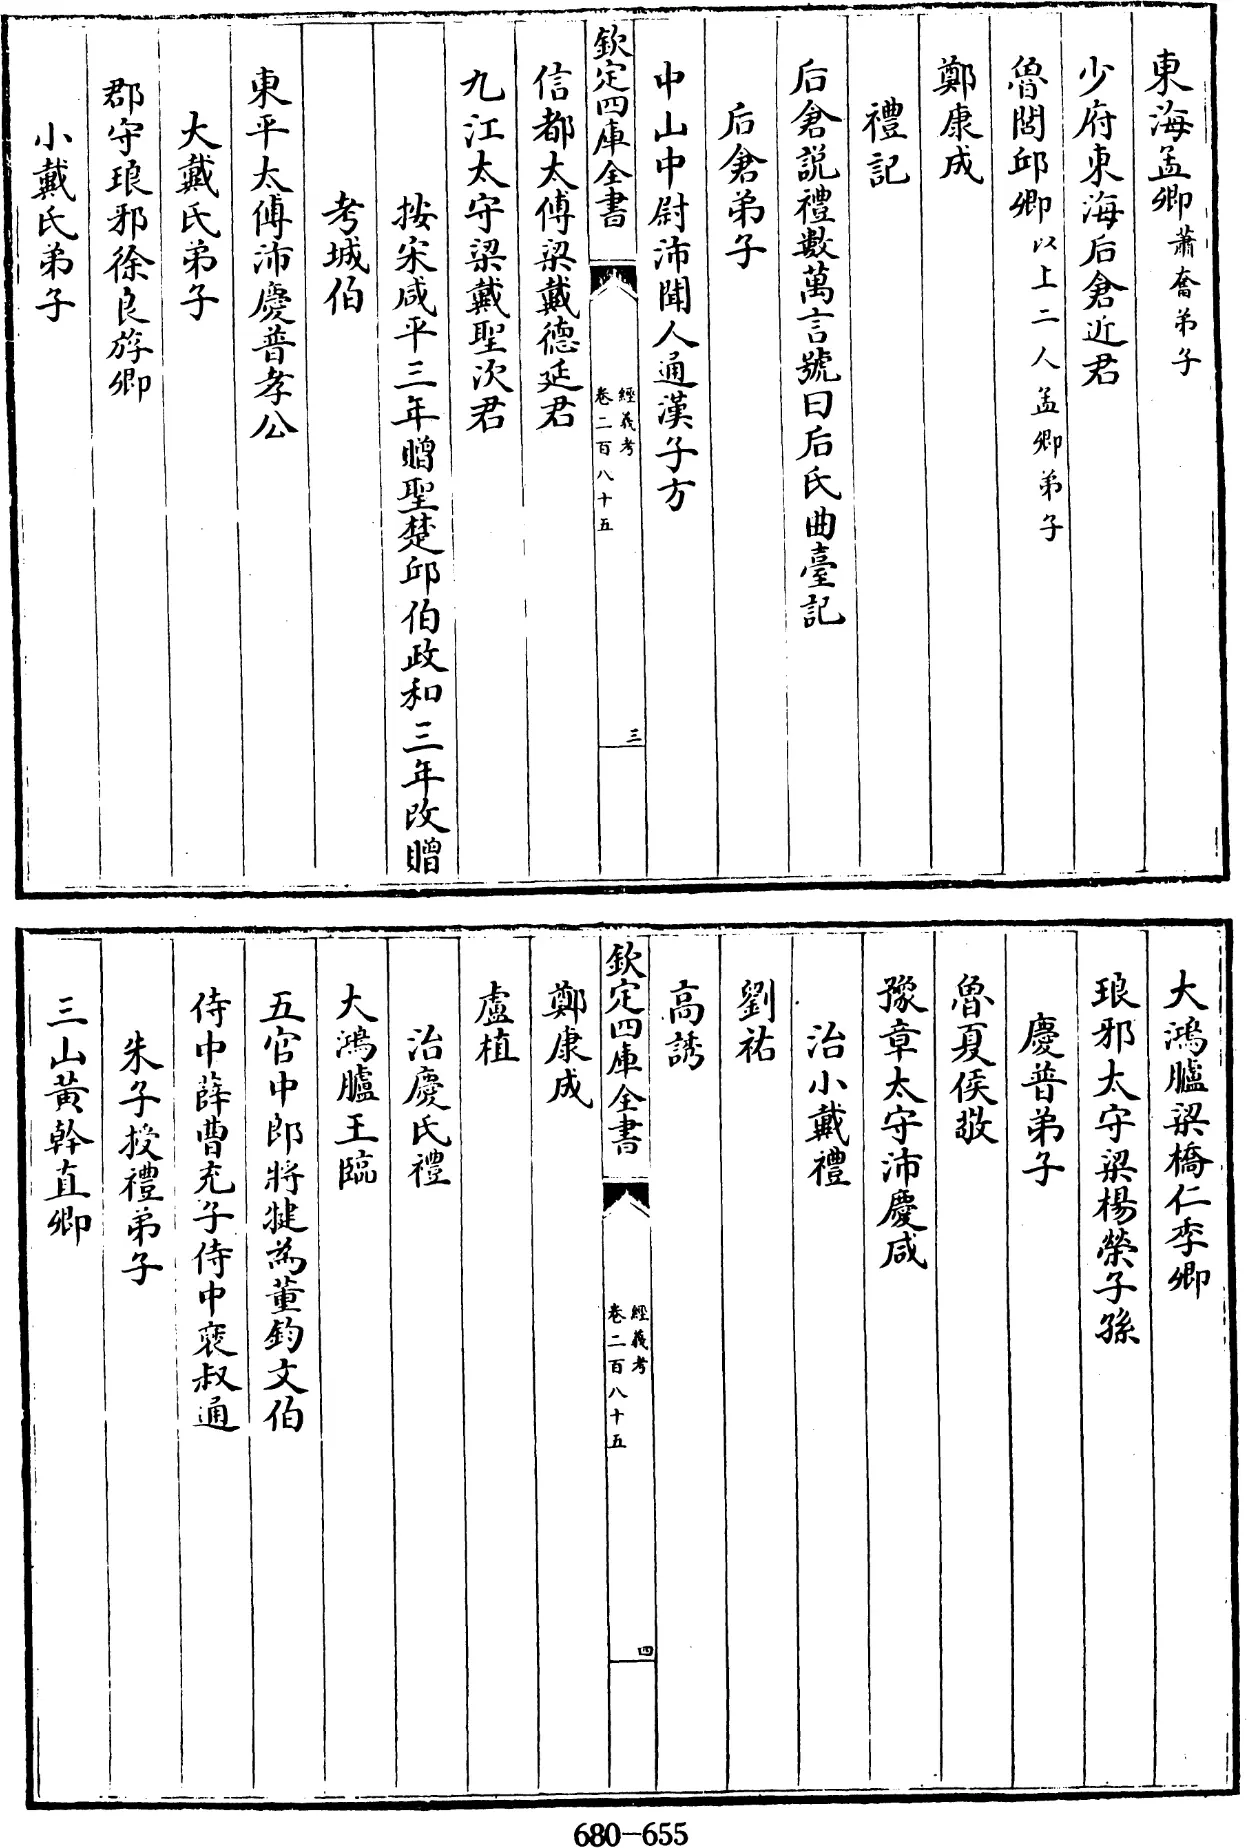 東海孟卿蕭奮弟子
少府東海后倉近君
魯閭邱卿以上二人孟卿弟子
鄭康成
禮記
后倉説禮數萬言號曰后氏曲臺記
后倉弟子
中山中尉沛聞人通漢子方
欽定四庫全書
經義考
卷二百八十五
三
信都太傅梁戴德延君
九江太守梁戴聖次君
按宋咸平三年贈聖楚邱伯政和三年改贈
考城伯
東平太傅沛慶普孝公
大戴氏弟子
郡守琅邪徐良斿卿
小戴氏弟子
大鴻臚梁橋仁季卿
琅邪太守梁楊榮子孫
慶普弟子
魯夏侯敬
豫章太守沛慶咸
治小戴禮
劉祐
高誘
欽定四庫全書
經義考
卷二百八十五
四
鄭康成
盧植
治慶氏禮
大鴻臚王臨
五官中郎將犍為董鈞文伯
侍中薛曹充子侍中襃叔通
朱子授禮弟子
三山黃幹直卿
680-655